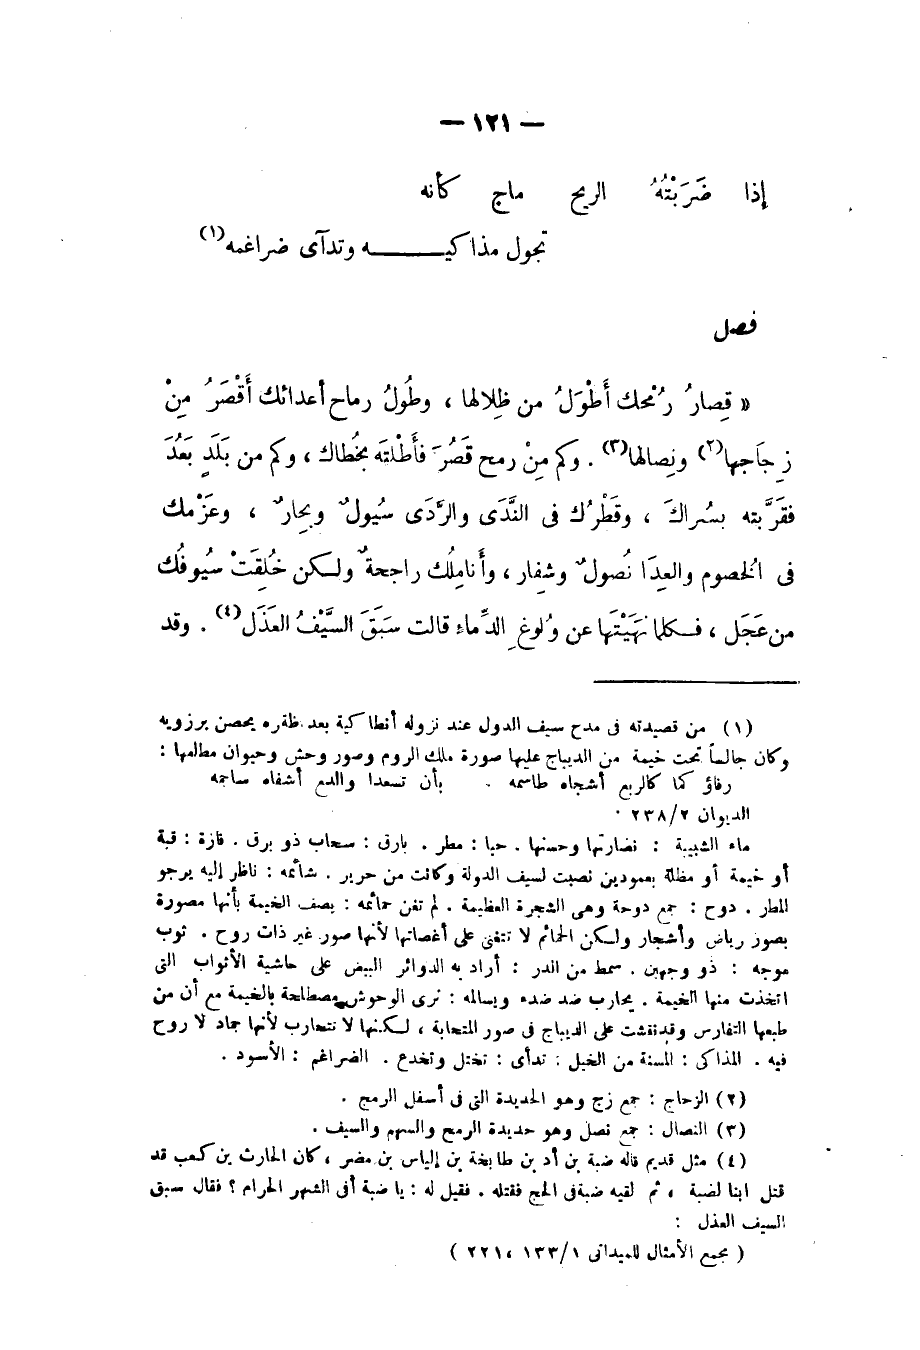 — ١٢١ —
إذا ضَرَبَتْهُ الريح ماج كأنه
تجول مذاكيـــــــه وتدآى ضراغمه(١)
فصل
« قِصارُ رُمْحك أَطْوَلُ من ظِلالها ، وطُولُ رماح أعدائك أَقْصَرُ مِنْ
زِجاَجها(٢) ونِصالها(٣) . وكم مِنْ رمح قَصُرَ فأَطْلتَه بخُطاك ، وكم من بَلَدٍ بَعُدَ
فقَرَّبته بسُراكَ ، وقَطْرُك فى النَّدَى والرَّدَى سُيولٌ وبِحارٌ ، وعَزْمك
فى الخصوم والعِدَا نُصولٌ وشِفار ، وأَناملُك راجحةٌ ولكن خُلِقَتْ سُيوفُك
من عَجَل ، فكلما نَهَيْتَها عن وُلوغِ الدِّماء قالت سَبَقَ السَّيْفُ العَذَل(٤) . وقد
(١) من قصيدته فى مدح سيف الدول عند نزوله أنطاكية بعد ظفره بحصن برزويه
وكان جالساً تحت خيمة من الديباج عليها صورة ملك الروم وصور وحش وحيوان مطلعها :
رفاؤ كما كالربع أشجاه طاسمه . بأن تسعدا والدمع أشفاه ساجمه
الديوان ٢٣٨/٢ .
ماء الشبيبة : نضارتها وحسنها . حيا : مطر . بارق : سحاب ذو برق . فازة : قبة
أو خيمة أو مظلة بعمودين نصبت لسيف الدولة وكانت من حرير . شائمه : ناظر إليه يرجو
المطر . دوح : جمع دوحة وهى الشجرة العظيمة . لم تغن حمائمه : يصف الخيمة بأنها مصورة
بصور رياض وأشجار ولكن الحمائم لا تتغنى على أغصانها لأنها صور غير ذات روح . ثوب
موجه : ذو وجهين . سمط من الدر : أراد به الدوائر البيض على حاشية الأثواب التى
اتخذت منها الخيمة . يحارب ضد ضده ويسالمه : ترى الوحوش مصطلحة بالخيمة مع أن من
طبعها التفارس وقد نقشت على الديباج فى صور المتحابة ، لكنها لا تتحارب لأنها جماد لا روح
فيه . المذاكى : المسنة من الخيل : تدأى : تختل وتخدع . الضراغم : الأسود .
(٢) الزجاج : جمع زج وهو الحديدة التى فى أسفل الرمح .
(٣) النصال : جمع نصل وهو حديدة الرمح والسهم والسيف .
(٤) مثل قديم قاله ضبة بن أد بن طابخة بن إلياس بن مضر ، كان الحارث بن كعب قد
قتل ابنا لضبة ، ثم لقيه ضبة فى الحج فقتله . فقيل له : يا ضبة أفى الشهر الحرام ؟ فقال سبق
السيف العذل :
( مجمع الأمثال للميدانى ١٣٣/١ ، ٢٢١ )